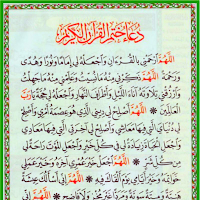 دعاء ختم القرآن الكريم
اللهم ارحمني بالقرءان واجعله لي إماما ونورا وهدى
ورحمة اللهم ذكرني منه ما نسيت وعلمني منه ما جهلت
وارزقني تلاوته آناء الليل وأطراف النهار واجعله لي حجة يا رب
العالمين اللهم أصلح لي ديني الذي هو عصمة أمري وأصلح
لي دنياي التي فيها معاشي وأصلح لي آخرتي التي فيها معادي
واجعل الحياة زيادة لي في كل خير واجعل الموت راحة لي
من كل شر اللهم اجعل خير عمري آخره وخير عملي
خواتمه وخير أيامي يوم ألقاك فيه اللهم إني أسألك عيشة
هنية وميتة سوية ومردا غير مخز ولا فاضح اللهم إني